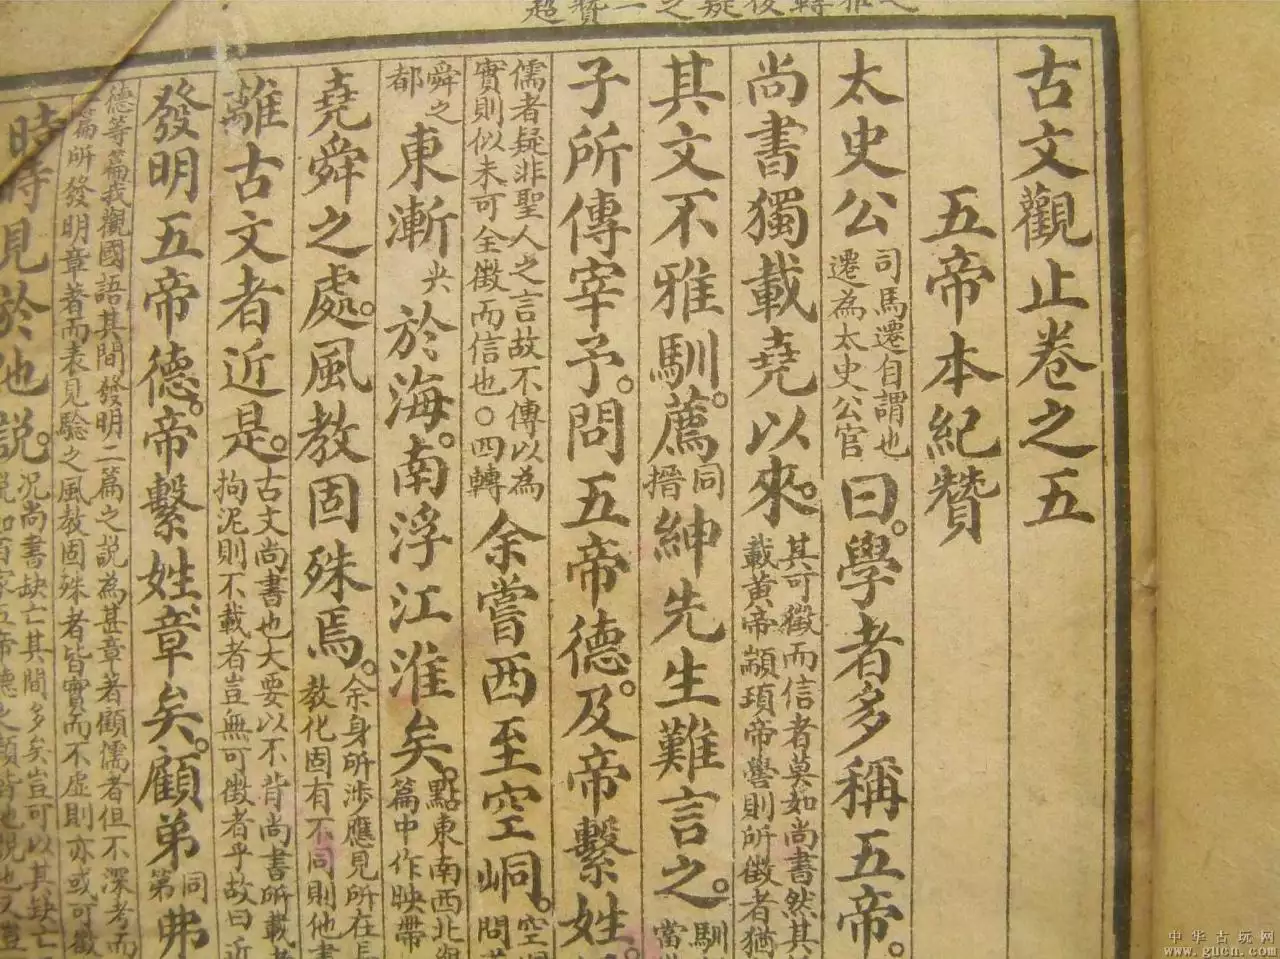 古文觀止卷之五
五帝本紀贊
太史公司馬遷自謂也遷為太史公官曰。學者多稱五帝。
尚書獨載堯以來。其可徵而信者莫如尚書然其載黃帝顓頊帝嚳則所徵者猶
其文不雅馴。薦同搢紳先生難言之。馴當
子所傳宰予。問五帝德。及帝繫姓
儒者疑非聖人之言故不傳以為實則似未可全徵而信也○四轉余嘗西至空峒。空問
舜之都東漸尖於海。南浮江淮矣。點東南西北篇中作映帶
堯舜之處。風教固殊焉。余身所涉應見所在教化固有不同則他書
離古文者近是。古文尚書也大要以不背尚書所載者拘泥則不載者豈無可徵者乎故曰近
發明五帝德。帝繫姓章矣。顧弟同第弗
德等篇我觀國語其間發明二篇之說為甚章著顧儒者但不深考而篇所發明章著而表見驗之風教固殊者皆實而不虛則亦或可徵
時時見於他說。況尚書缺亡其間多矣豈可以其缺亡
中华古玩网
www.gucn.com